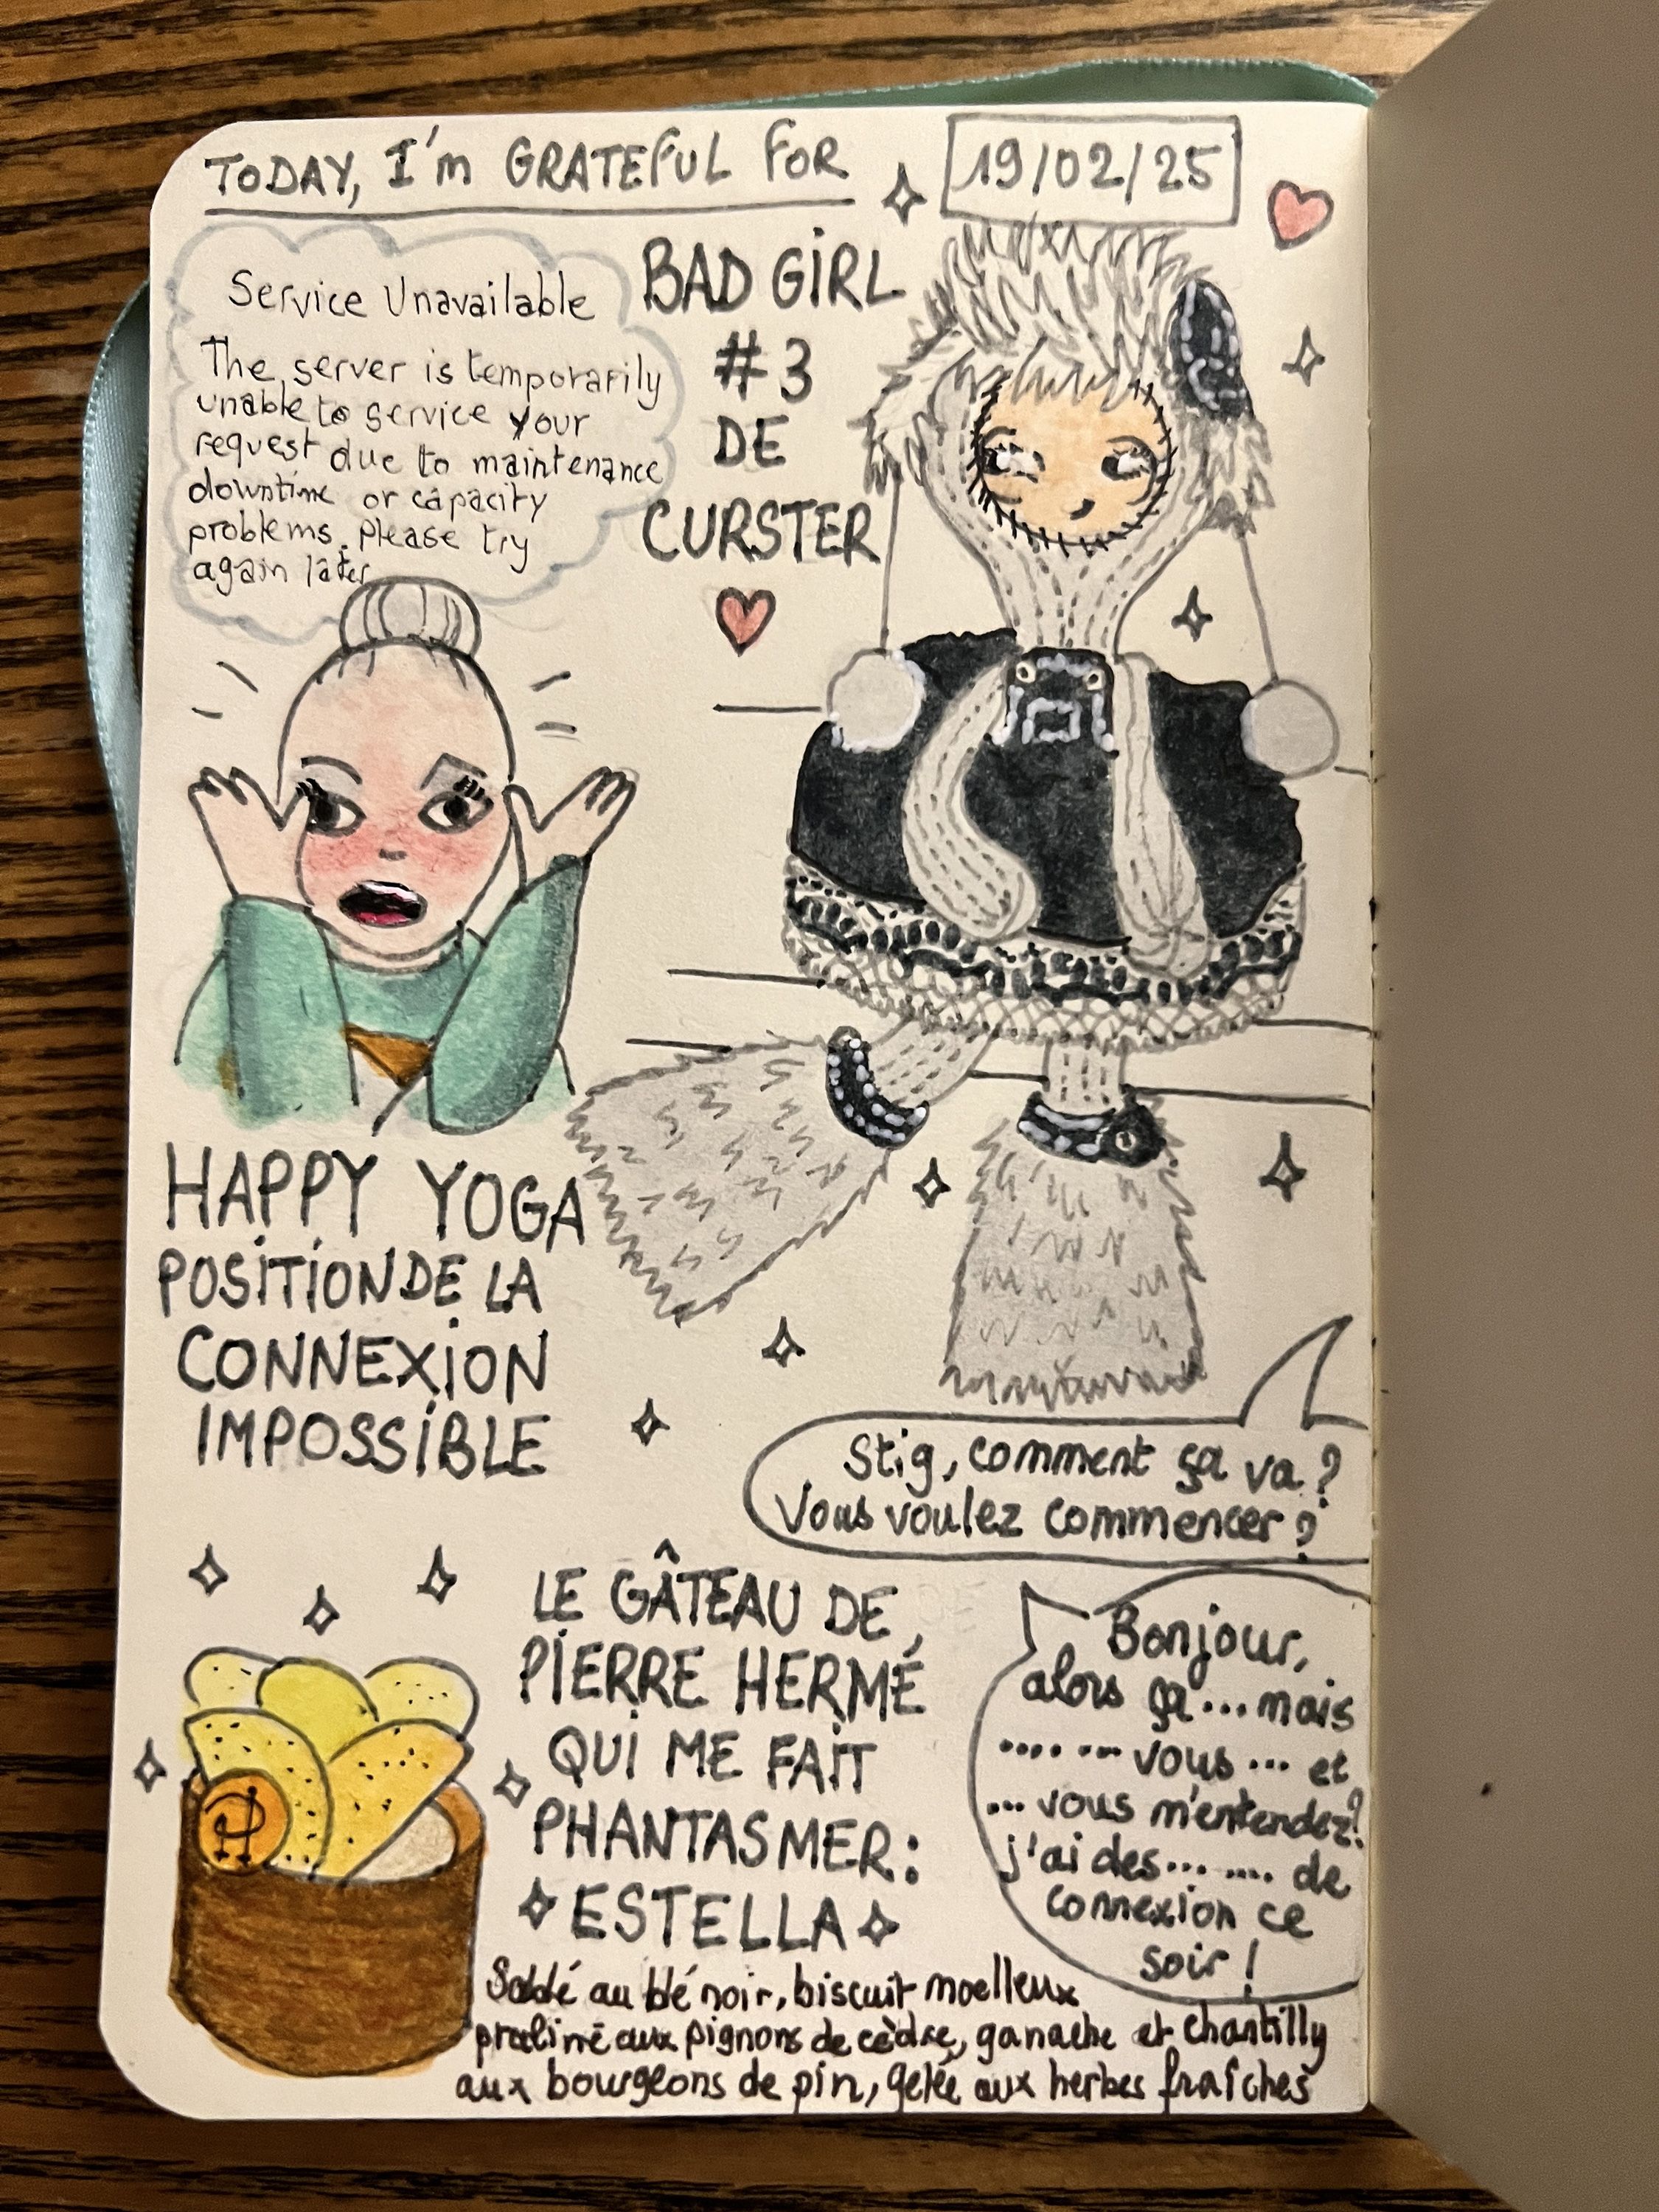 TODAY, I'm GRATEFUL FOR
19/02/25
Service Unavailable
The server is temporarily
unable to service your
request due to maintenance
downtime or capacity
problems. Please try
again later
BAD GIRL
#3
DE
CURSTER
HAPPY YOGA
POSITION DE LA
CONNEXION
IMPOSSIBLE
Stig, comment ça va?
Vous voulez commencer?
Bonjour,
alors ça... mais
....... vous ... et
... vous m'entendez?
j'ai des... .... de
connexion ce
soir!
LE GÂTEAU DE
PIERRE HERMÉ
QUI ME FAIT
PHANTASMER:
ESTELLA
PH
Sablé au blé noir, biscuit moelleux
praliné aux pignons de cèdre, ganache et chantilly
aux bourgeons de pin, gelée aux herbes fraîches